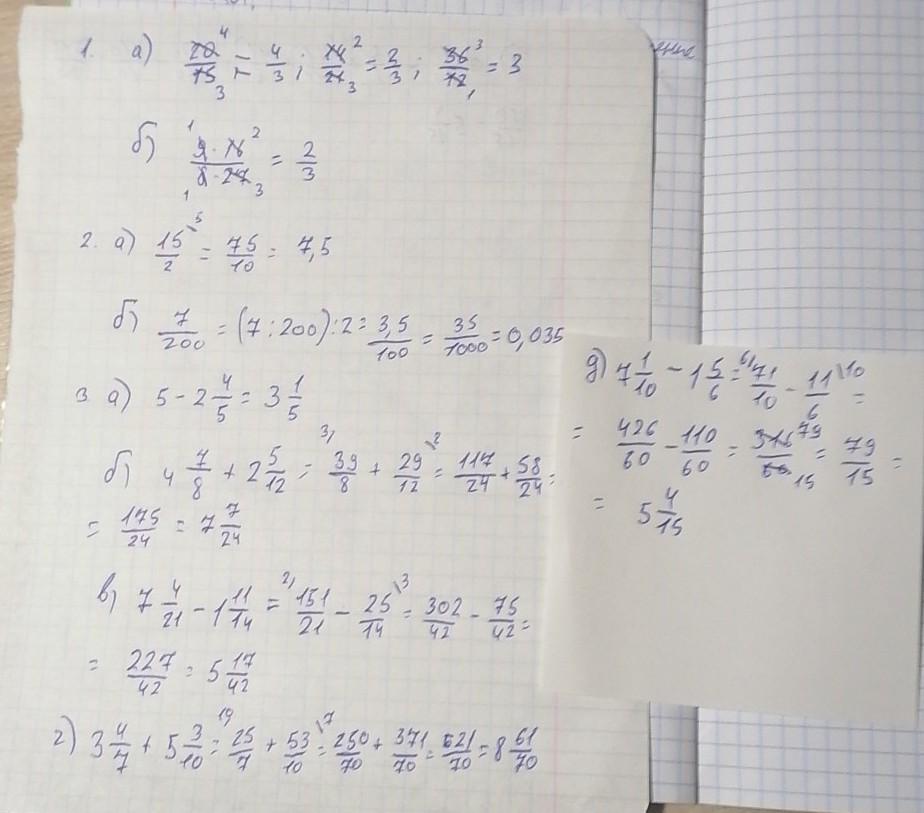 1. а) 20/15 = 4/3; 14/21 = 2/3; 36/12 = 3
б) 9·16/8·27 = 2/3
2. а) 15/2 = 75/10 = 7,5
б) 7/200 = (7:200):2 = 3,5/100 = 35/1000 = 0,035
3. а) 5 - 2 4/5 = 3 1/5
б) 4 7/8 + 2 5/12 = 39/8 + 29/12 = 117/24 + 58/24 =
= 175/24 = 7 7/24
в) 7 4/21 - 1 11/14 = 151/21 - 25/14 = 302/42 - 75/42 =
= 227/42 = 5 17/42
г) 3 4/7 + 5 3/10 = 25/7 + 53/10 = 250/70 + 371/70 = 621/70 = 8 61/70
д) 7 1/10 - 1 5/6 = 71/10 - 11/6 =
= 426/60 - 110/60 = 316/60 = 79/15 =
= 5 4/15